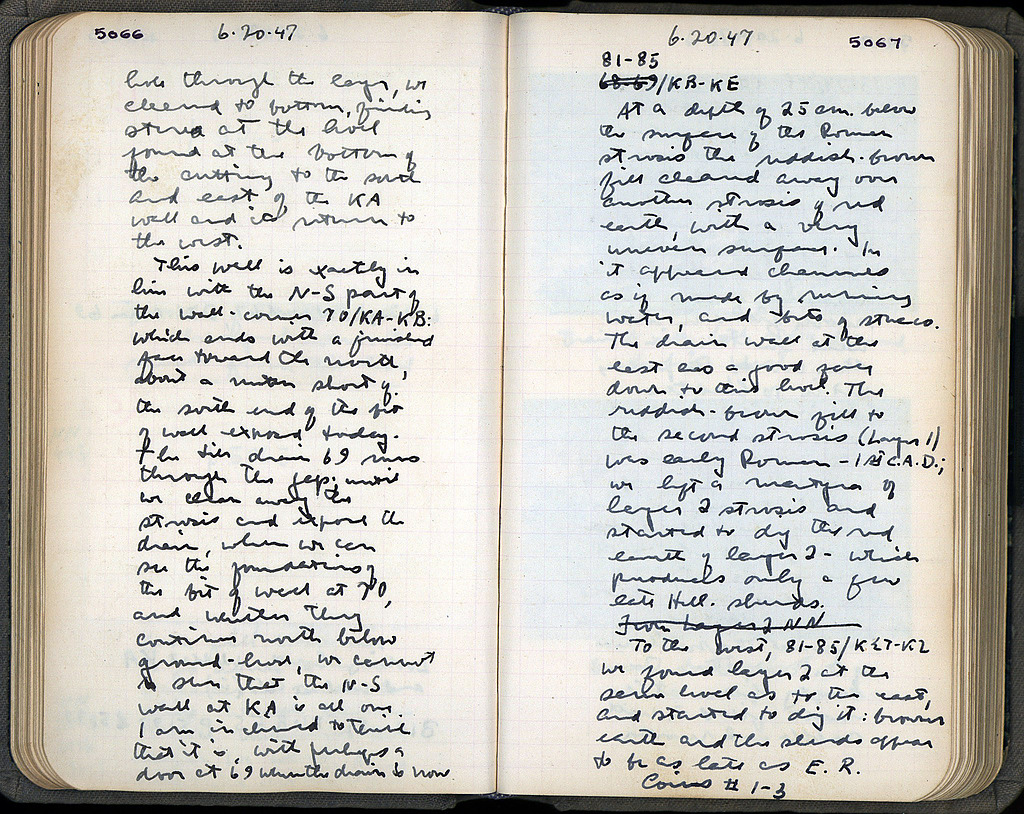 5066 6.20.47
hole through the layer, we
cleaned to bottom, finding
stereo at the level
found at the bottom of
the cutting to the south
and east of the KA
wall and its return to
the west.
This wall is exactly in
line with the N-S part of
the wall-corner 70/KA-KB:
which ends with a finished
face toward the north,
about a meter short of
the south end of the bit
of wall exposed today.
The tile drain 69 runs
through the gap; until
we clean away the
strosis and expose the
drain, when we can
see the foundations of
the bit of wall at 70,
and whether they
continue north below
ground-level, we cannot
be sure that the N-S
wall at KA is all one.
I am inclined to think
that it is, with perhaps a
door at 69 where the drain is now
6.20.47 5067
81-85
68-69/KB-KE
At a depth of 25 cm. below
the surface of the Roman
strosis the reddish-brown
fill cleaned away over
another strosis of red
earth, with a very
uneven surface. In
it appeared channels
as if made by running
water, and bits of stucco.
The drain wall at the
east has a good face
down to this level. The
reddish-brown fill to
the second strosis (Layer 1)
was early Roman - 1st C. A.D.;
we left a martyra of
layer 2 strosis and
started to dig the red
earth of layer 2 - which
produces only a few
late Hell. sherds.
From Layer 2 NN
To the west, 81-85/
we found layer 2 at the
same level as to the east,
and started to dig it: brown
earth and the sherds appear
to be as late as E. R.
Coins # 1-3